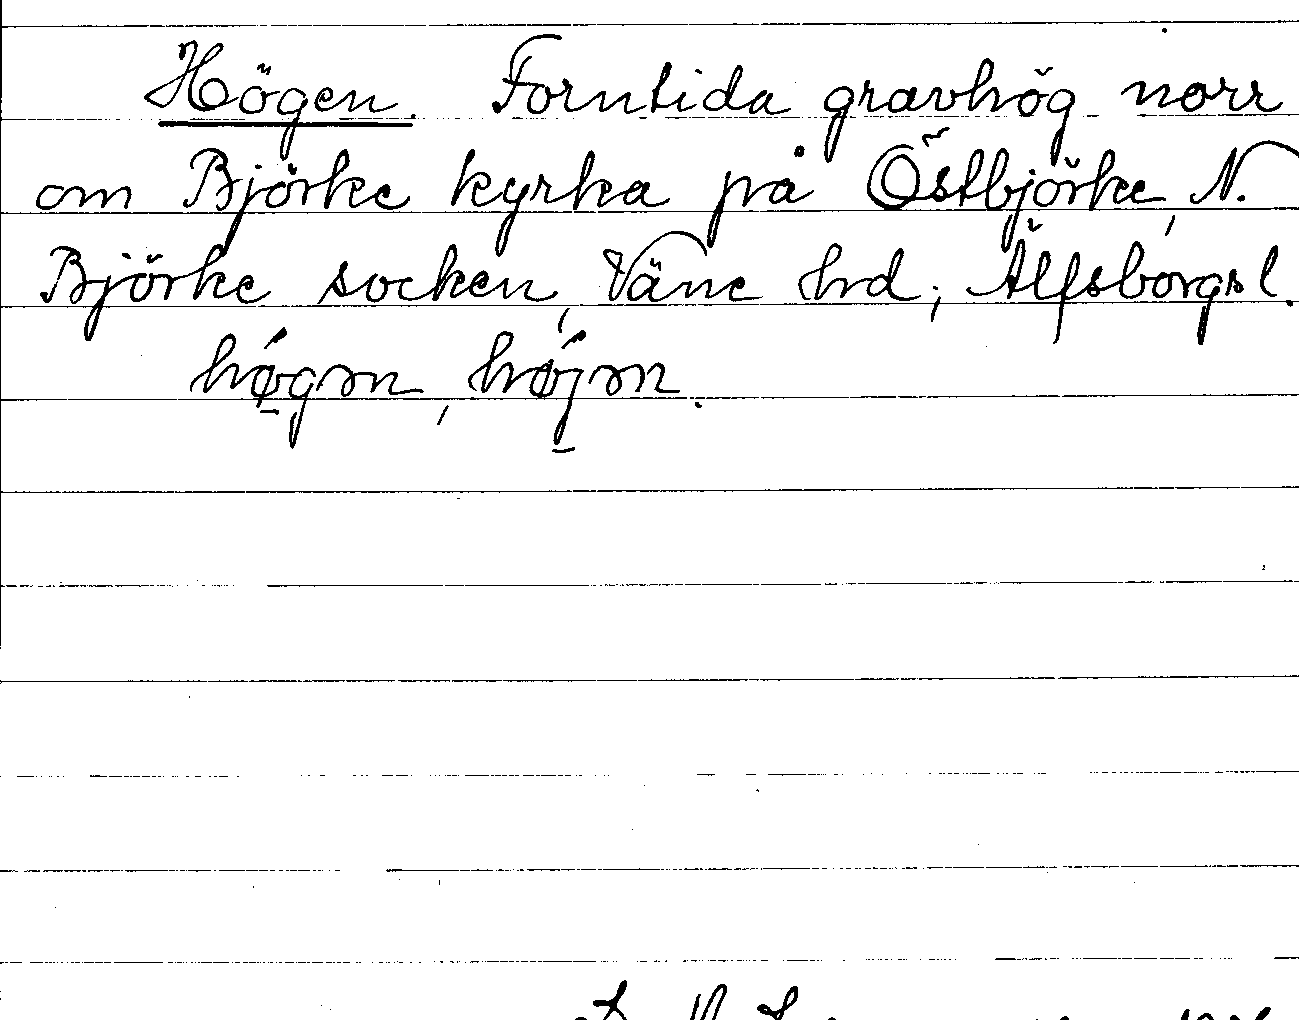 Högen. Forntida gravhög norr
om Björke kyrka på Östbjörke, N.
Björke socken, Väne hrd, Älfsborgs l.
hǿgən, hǿjən.